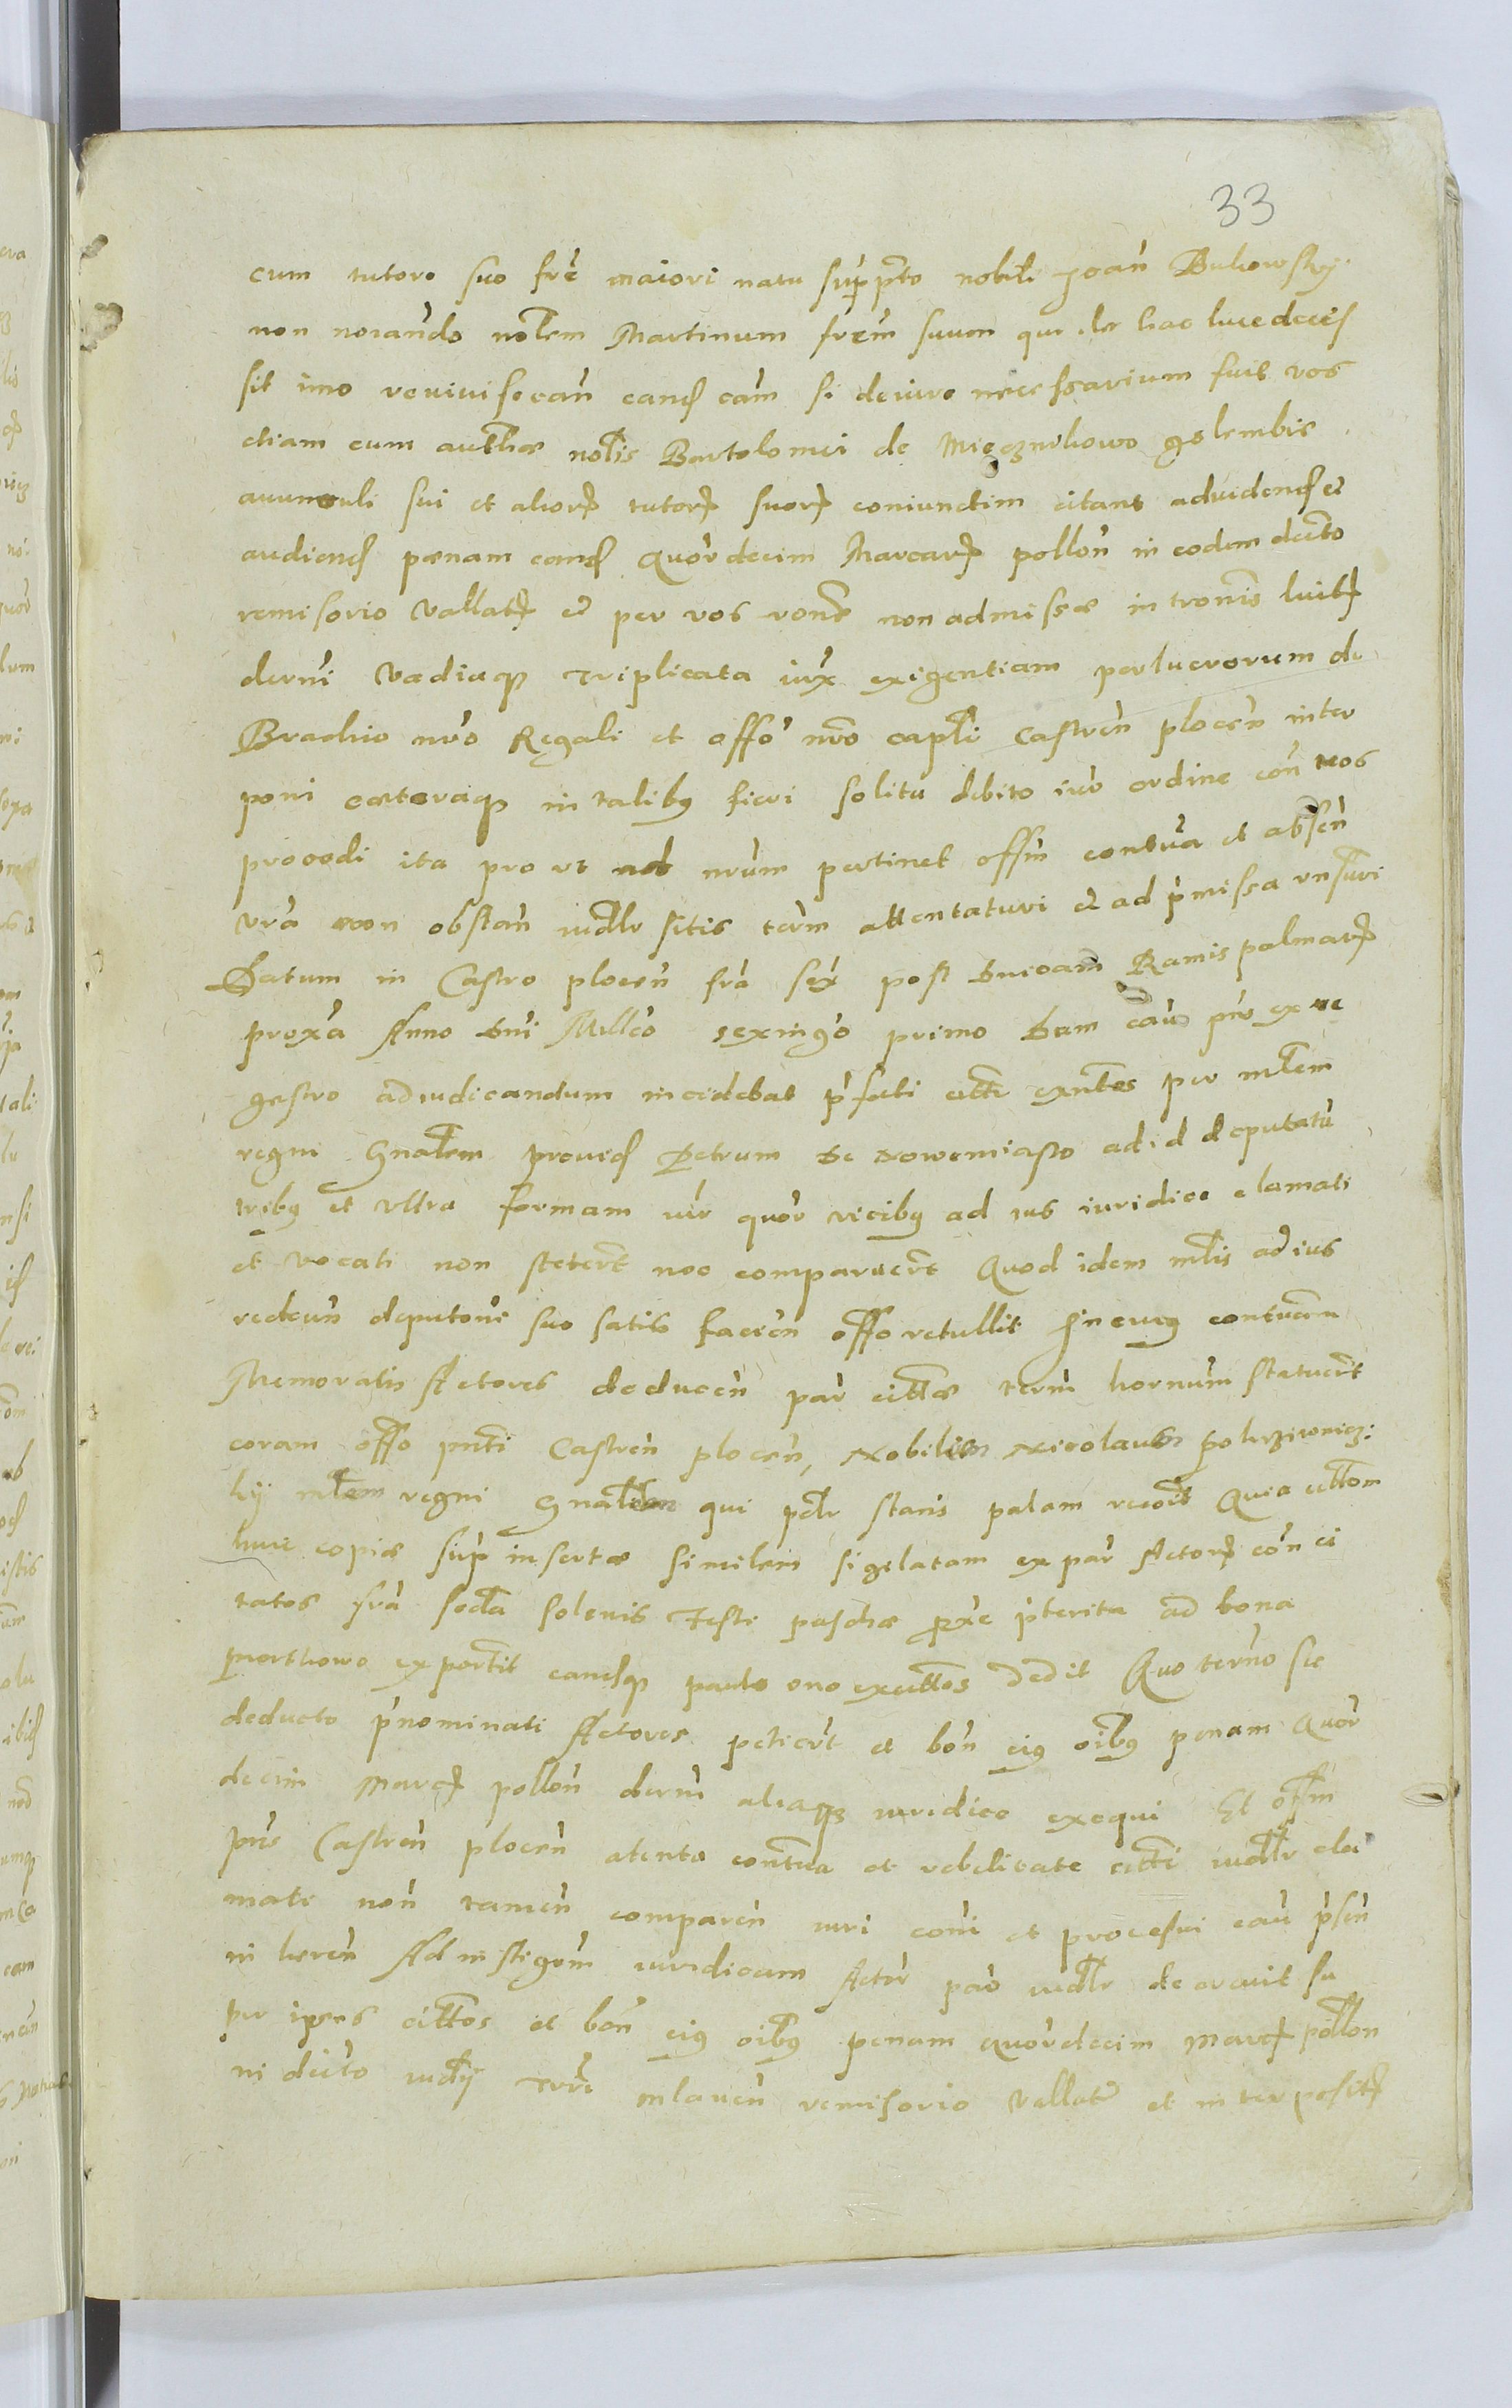 33
cum tutore suo fre maiori natu suppto nobili Joan Bukowsky
non novando noblem Martinum frem suum qui de hac luce deces
sit imo reviviscean eand cam si de iure necessarium fuit vos
etiam cum autthe noblis Bartolomei de Mięcznikowo golembie
avunculi sui et alior tutor suor coniunctim citant ad videnд et
audiend pænam eand Quordecim Marcar pollon in eodem decto
remisorio vallat et per vos rone non admissæ intronis luit
dcerni vadiaq triplicata iux exigentiam perlucrorum de
Brachio nro Regali et offo nro capli Castren plocen inter
poni cæteraq in talibus fieri solita debito iur ordine con vos
procedi ita pro ut ad nrum pertinet offm contua et absen
vra non obstan iudlr sitis term attentaturi et ad pmissa rnsuri
Datum in Castro plocen fra sex post dnicam Ramis palmar
proxa Anno dni Milleo sexingo primo dum cau pns ex re
gestro adiudicandum incidebat pfati citti exntes per mlem
regni Gnalem provid Petrum de Nowemiasto ad id deputatu
tribus et ultra formam iur quor vicibus ad ius iuridice clamati
et vocati non stetert nec comparuert Quod idem mlis ad ius
redeun deputoni suo satis facien offo retullit In cuius contuam
Memoratis Actores deducen par cittæ term hornum statuert
coram offo pnti Castren plocen, Nobilem Nicolaum
hy mlem regni Gnalem qui pslr stans palam recoit Quia cittom
huic copiæ sup insertæ similem sigelatam ex par Actor con ci
tatos fra secda solenis Festi paschæ pxe pterita ad bona
exportit eandq exeittos dedit Quo termo sic
deducto pnominati Actores petiert et bon eius oibus penam Quor
decim Marc pollon dcerni aliaq iuridice exequi Et offm
pns Castren plocen atenta contua et rebelitate citti iudlr cla
mati non tamen comparen iuri coni et procesui cau psen
in heren Ad instigom iuridicam Actor par iudlr decrevit su
per ipsos cittos et bon eius oibus penam Quordecim Marc pollon
in decto iudii Trri mlaven remisorio vallat et interposit